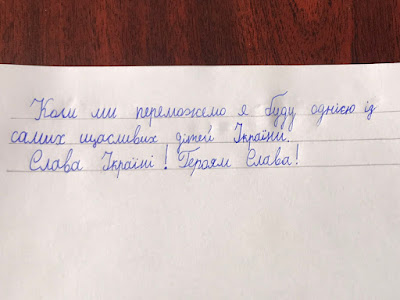 Коли ми переможемо я буду однією із
самих щасливих дітей України.
Слава Україні! Героям Слава!